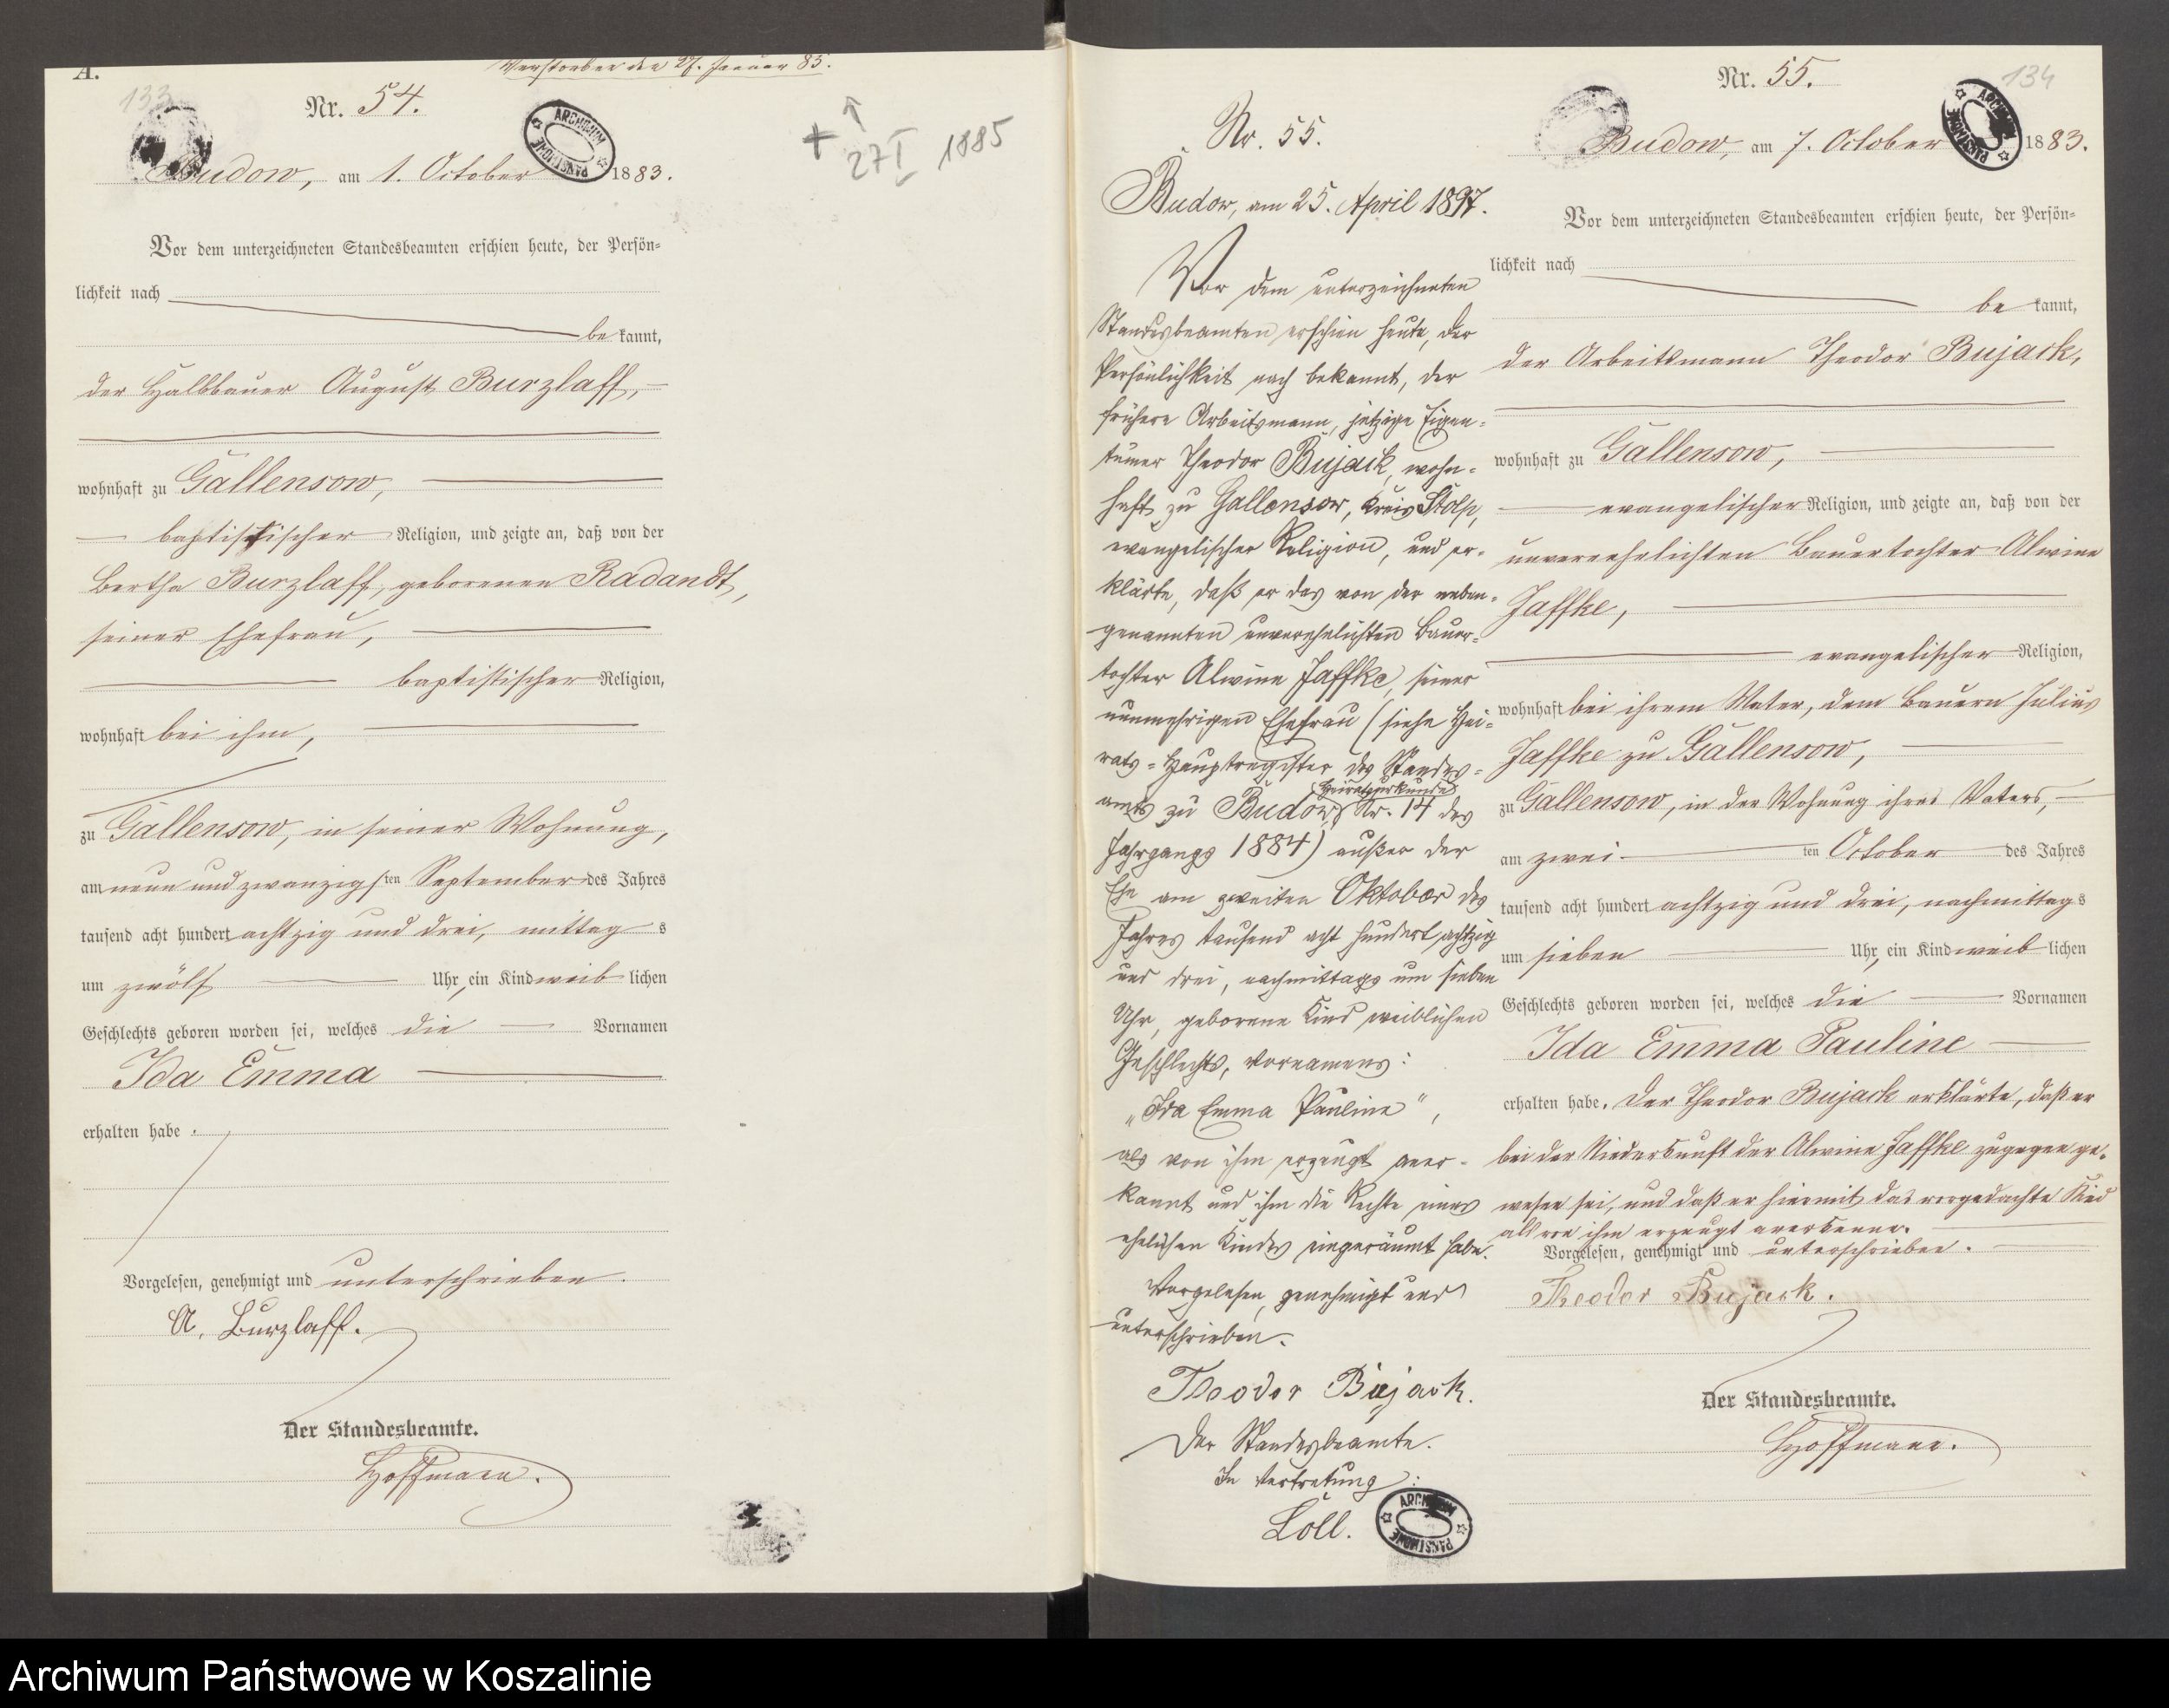 A.
Verstorben den 27. Januar 85.
133
Nr. 54.
ARCHIWUM PAŃSTWOWE
Budow, am 1. October 1883.
+ 27 I 1885
Vor dem unterzeichneten Standesbeamten erschien heute, der Persön-
lichkeit nach
be kannt,
der Halbbauer August Burzlaff,
wohnhaft zu Gallensow,
baptistischer Religion, und zeigte an, daß von der
Bertha Burzlaff, geborenen Radandt,
seiner Ehefrau,
baptistischer Religion,
wohnhaft bei ihm,
zu Gallensow, in seiner Wohnung,
am neun und zwanzigsten September des Jahres
tausend acht hundert achtzig und drei, mittag s
um zwölf Uhr, ein Kind weib lichen
Geschlechts geboren worden sei, welches die Vornamen
Ida Emma
erhalten habe.
Vorgelesen, genehmigt und unterschrieben.
A. Burzlaff.
Der Standesbeamte.
Hoffmann.
Nr. 55.
Budow, am 25. April 1897.
Vor dem unterzeichneten
Standesbeamten erschien heute, der
Persönlichkeit nach bekannt, der
frühere Arbeitsmann, jetzige Eigen-
tümer Theodor Bujack, wohn-
haft zu Gallensow, Kreis Stolp,
evangelischer Religion, und er-
klärte, daß er das von der neben-
genannten unverehelichten Bauer-
tochter Alwine Jaffke, seiner
nunmehrigen Ehefrau (siehe Hei-
rats-Hauptregister des Standes-
Heiratsurkunde
amts zu Budow, Nr. 14 des
Jahrgangs 1884) außer der
Ehe am zweiten Oktober des
Jahres tausend acht hundert achtzig
und drei, nachmittags um sieben
Uhr, geborene Kind weiblichen
Geschlechts, Vornamens:
„Ida Emma Pauline“,
als von ihm erzeugt aner-
kannt und ihm die Rechte eines
ehelichen Kindes eingeräumt habe.
Vorgelesen, genehmigt und
unterschrieben.
Theodor Bujack.
Der Standesbeamte.
In Vertretung:
Löll.
ARCHIWUM PAŃSTWOWE
134
Nr. 55.
ARCHIWUM PAŃSTWOWE
Budow, am 7. October 1883.
Vor dem unterzeichneten Standesbeamten erschien heute, der Persön-
lichkeit nach
be kannt,
der Arbeitsmann Theodor Bujack,
wohnhaft zu Gallensow,
evangelischer Religion, und zeigte an, daß von der
unverehelichten Bauertochter Alwine
Jaffke,
evangelischer Religion,
wohnhaft bei ihrem Vater, dem Bauern Julius
Jaffke zu Gallensow,
zu Gallensow, in der Wohnung ihres Vaters,
am zwei ten October des Jahres
tausend acht hundert achtzig und drei, nachmittag s
um sieben Uhr, ein Kind weib lichen
Geschlechts geboren worden sei, welches die Vornamen
Ida Emma Pauline
erhalten habe. Der Theodor Bujack erklärte, daß er
bei der Niederkunft der Alwine Jaffke zugegen ge-
wesen sei, und daß er hiermit das vorgedachte Kind
als von ihm erzeugt anerkenne.
Vorgelesen, genehmigt und unterschrieben.
Theodor Bujack.
Der Standesbeamte.
Hoffmann.
Archiwum Państwowe w Koszalinie